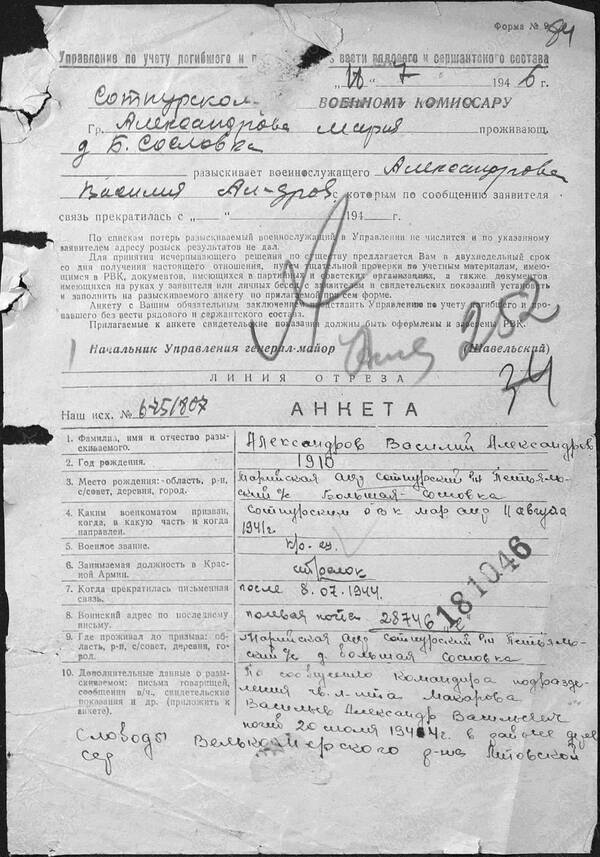 Форма № 9
94
Управление по учету погибшего и вести рядового и сержантского состава
"18" 7 1946 г.
Сотнурском ВОЕННОМУ КОМИССАРУ
Гр. Александрова Мария проживающ.
д Б. Сословка
разыскивает военнослужащего Александрова
Василия Ал-дров с которым по сообщению заявителя
связь прекратилась с „ “ 194 г.
По спискам потерь разыскиваемый военнослужащий в Управлении не числится и по указанному
заявителем адресу розыск результатов не дал.
Для принятия исчерпывающего решения по существу предлагается Вам в двухнедельный срок
со дня получения настоящего отношения, путем тщательной проверки по учетным материалам, имею-
щимся в РВК, документов, имеющихся в партийных и советских организациях, а также документов
имеющихся на руках у заявителя или личных бесед с заявителем и свидетельских показаний установить
и заполнить на разыскиваемого анкету по прилагаемой всем форме.
Анкету с Вашим обязательным заключением представить Управлению по учету погибшего и про-
павшего без вести рядового и сержантского состава.
Прилагаемые к анкете свидетельские показания должны быть оформлены и заверены РВК.
252
Начальник Управления генерал-майор (Шавельский)
ЛИНИЯ ОТРЕЗА
34
Наш исх. № 675/807
АНКЕТА
1. Фамилия, имя и отчество разы-
скиваемого.
Александров Василий Александров
2. Год рождения.
1910
3. Место рождения: область, р-н,
с/совет, деревня, город.
Марийская АССР Сотнурский р-н Петъяль-
ский с/с Большая Сословка
4. Каким военкоматом призван,
когда, в какую часть и когда
направлен.
Сотнурским РВК Мар АССР 11 августа
1941г.
5. Военное звание.
кр-ец
6. Занимаемая должность в Крас-
ной Армии.
стрелок
7. Когда прекратилась письменная
связь.
после 8.07.1944.
181046
8. Воинский адрес по последнему
письму.
полевая почта 28746
9. Где проживал до призыва: об-
ласть, р-н, с/совет, деревня, го-
род.
Марийская АССР Сотнурский р-н Петъяль-
ский с/с д. Большая Сословка
10. Дополнительные данные о ра-
зыскиваемом: письма товарищей,
сообщения в/ч., свидетельские
показания и др. (приложить к
анкете).
По сообщению командира подразде-
ления гв. л-нта Макарова
Васильев Александр Васильевич
погиб 20 июля 1944г в районе дер
Слободы Велькомирского р-на Литовской
сср